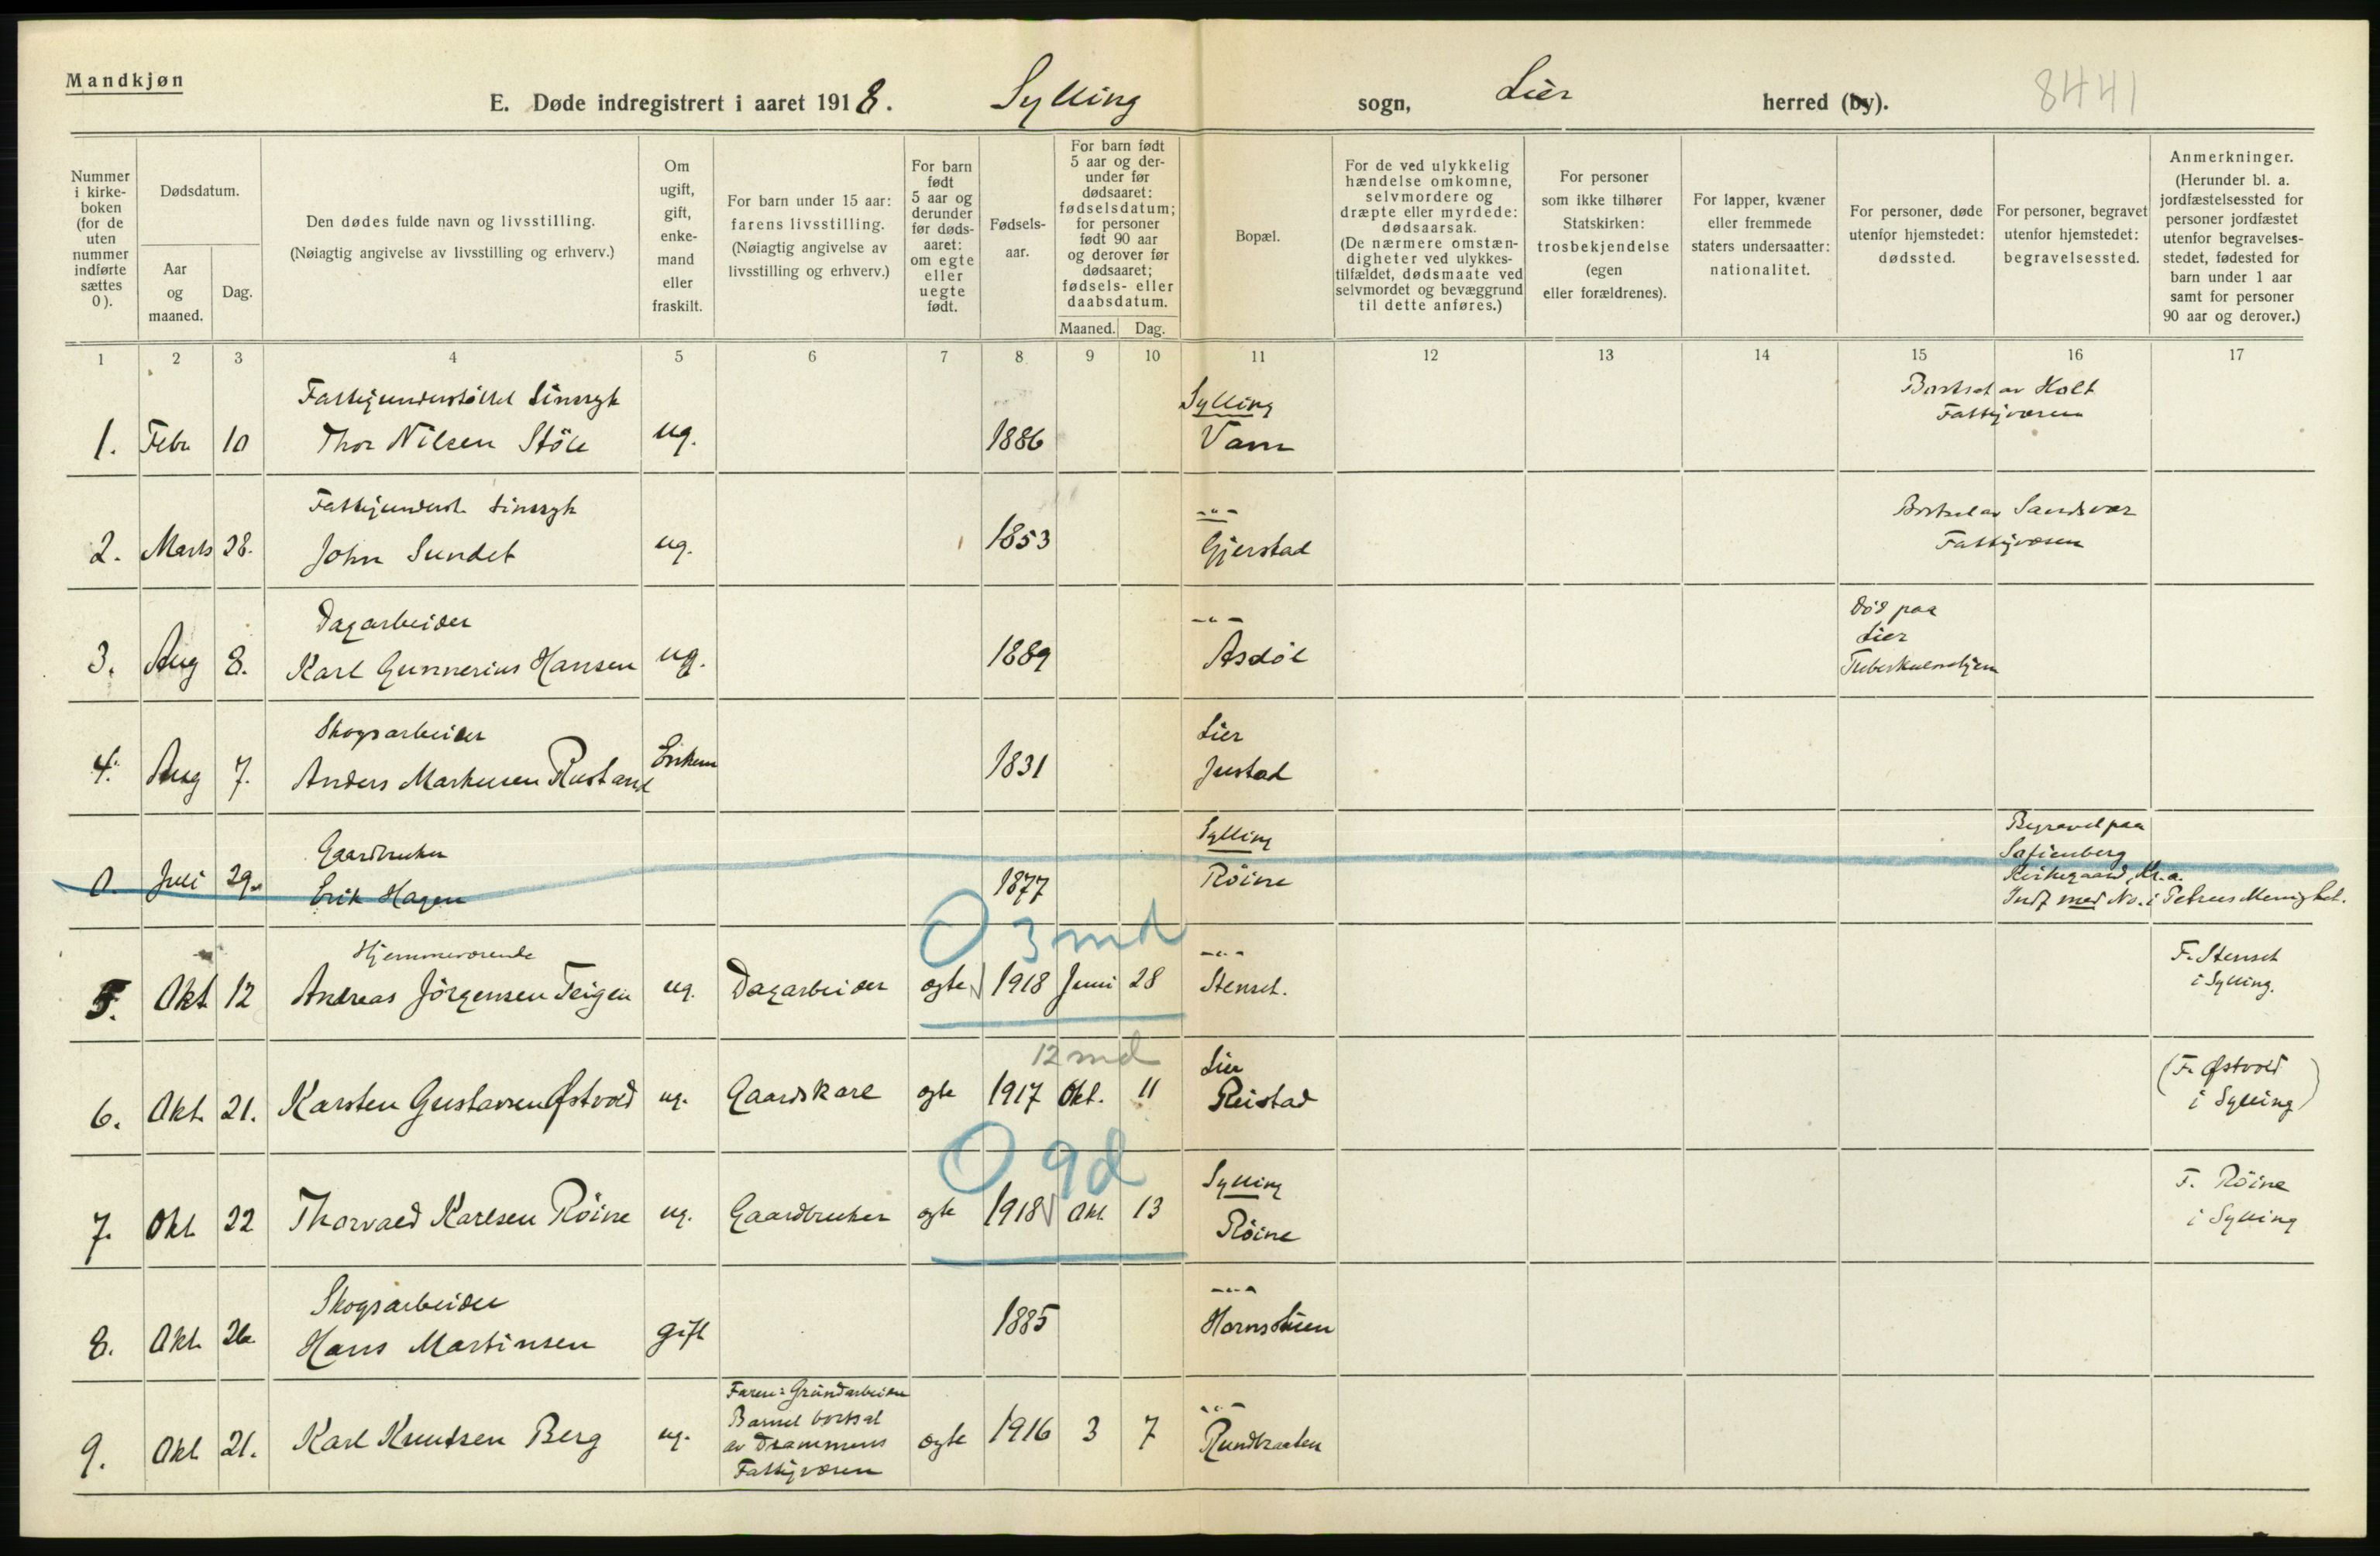 Mandkjøn
E. Døde indregistrert i aaret 1918. Sylling sogn, Lier herred (by). 8441
Nummer i kirke-boken (for de uten nummer indførte sættes 0).
Dødsdatum.
Aar og maaned.
Dag.
Den dødes fulde navn og livsstilling.
(Nøiagtig angivelse av livsstilling og erhverv.)
Om ugift, gift, enke-mand eller fraskilt.
For barn under 15 aar: farens livsstilling.
(Nøiagtig angivelse av livsstilling og erhverv.)
For barn født 5 aar og derunder før døds-aaret: om egte eller uegte født.
Fødsels-aar.
For barn født 5 aar og der-under før dødsaaret: fødselsdatum; for personer født 90 aar og derover før dødsaaret; fødsels- eller daabsdatum.
Maaned. Dag.
Bopæl.
For de ved ulykkelig hændelse omkomne, selvmordere og dræpte eller myrdede: dødsaarsak.
(De nærmere omstæn-digheter ved ulykkes-tilfældet, dødsmaate ved selvmordet og bevæggrund til dette anføres.)
For personer som ikke tilhører Statskirken: trosbekjendelse (egen eller forældrenes).
For lapper, kvæner eller fremmede staters undersaatter: nationalitet.
For personer, døde utenfor hjemstedet: dødssted.
For personer, begravet utenfor hjemstedet: begravelsessted.
Anmerkninger.
(Herunder bl. a. jordfæstelsessted for personer jordfæstet utenfor begravelses-stedet, fødested for barn under 1 aar samt for personer 90 aar og derover.)
1 2 3 4 5 6 7 8 9 10 11 12 13 14 15 16 17
Fattigunderstøttet Sinssyk Sylling Bortsat av Holt
1. Febr 10 Thor Nilsen Støle ug. 1886 Vam Fattigvæsen
Fattigunderst. Sinssyk -"- Bortsat av Sandsvær
2. Marts 28. John Sundet ug. 1853 Gjerstad Fattigvæsen
Dagarbeider -"- Død paa
Lier
3. Aug 8. Karl Gunnerius Hansen ug. 1889 Asdøl Tuberkulosehjem
Skogsarbeider Lier
4. Aug 7. Anders Markusen Rustand Enkem 1831 Justad
Gaardbruker Sylling Begravet paa
Sofienberg
0. Juli 29. Erik Hagen 1877 Røine Kirkegaard, Kr.a.
Indf med No. i Petrus Menighet.
O 3 md
Hjemmeværende -"- F. Stenset
5. Okt 12 Andreas Jörgensen Teigen ug. Dagarbeider ægte 1918 Juni 28 Stenset. i Sylling.
12 md
Lier (F. Østvold
6. Okt. 21. Karsten Gustavsen Østvold ug. Gaardskarl ægte 1917 Okt. 11 Reistad i Sylling)
O 9d
Sylling F. Röine
7. Okt. 22 Thorvald Karlsen Röine ug. Gaardbruker ægte 1918 Okt. 13 Röine i Sylling
Skogsarbeider -"-
8. Okt. 26 Hans Martinsen gift 1885 Hornslien
Faren: Grundarbeider
Barnet bortsat -"-
9. Okt 21. Karl Knudsen Berg ug. av Drammens ægte 1916 3 7 Rundbraaten
Fattigvæsen